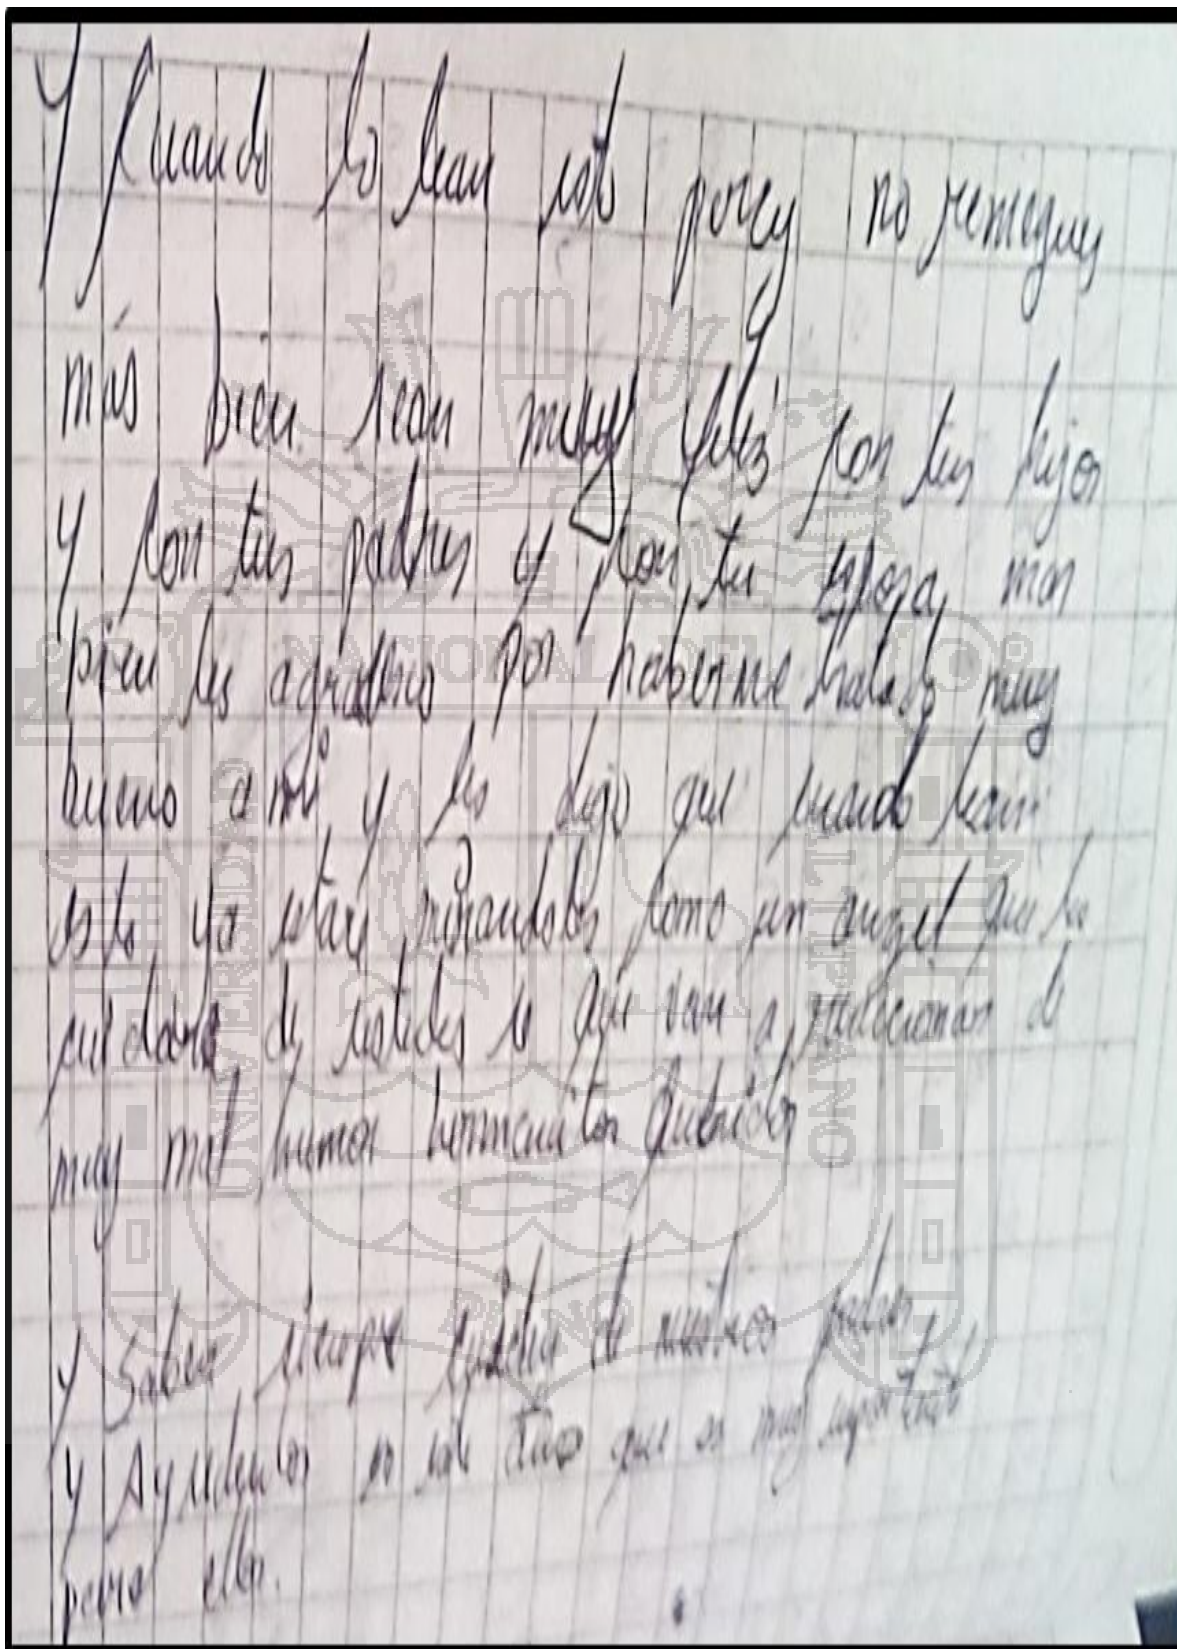 Y Cuando lo lean esto porey no renegues
más bien sean muy feliz con tus hijos
y con tus padres y con tu esposa, mas
bien les agradesco por haberme tratado muy
bueno a mí y les digo que cuando lean
esto ya estare mirandoles como un angel que los
cuidare de ustedes se que van a reaccionar de
muy mal humor hermanitos queridos
Y Saben siempre cuiden de nuestros padres
Y Ayudenlos en este que es muy importante
para ellos.
UNIVERSIDAD NACIONAL DEL ALTIPLANO
PUNO